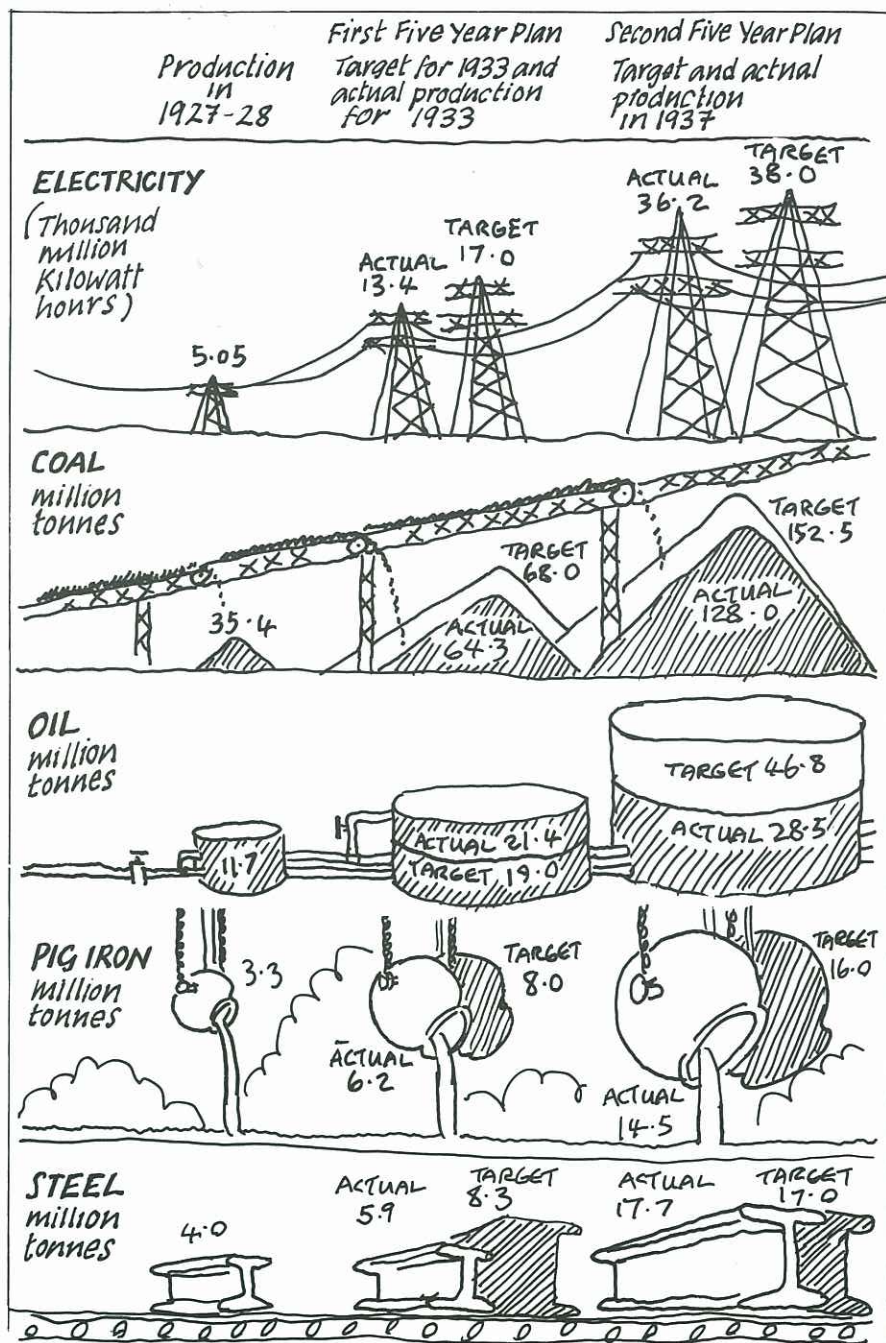 Production
in
1927-28
First Five Year Plan
Target for 1933 and
actual production
for 1933
Second Five Year Plan
Target and actual
production
in 1937
ELECTRICITY
(Thousand
million
Kilowatt
hours)
5.05
ACTUAL
13.4
TARGET
17.0
ACTUAL
36.2
TARGET
38.0
COAL
million
tonnes
35.4
TARGET
68.0
ACTUAL
64.3
TARGET
152.5
ACTUAL
128.0
OIL
million
tonnes
11.7
ACTUAL 21.4
TARGET 19.0
TARGET 46.8
ACTUAL 28.5
PIG IRON
million
tonnes
3.3
TARGET
8.0
ACTUAL
6.2
TARGET
16.0
ACTUAL
14.5
STEEL
million
tonnes
4.0
ACTUAL
5.9
TARGET
8.3
ACTUAL
17.7
TARGET
17.0